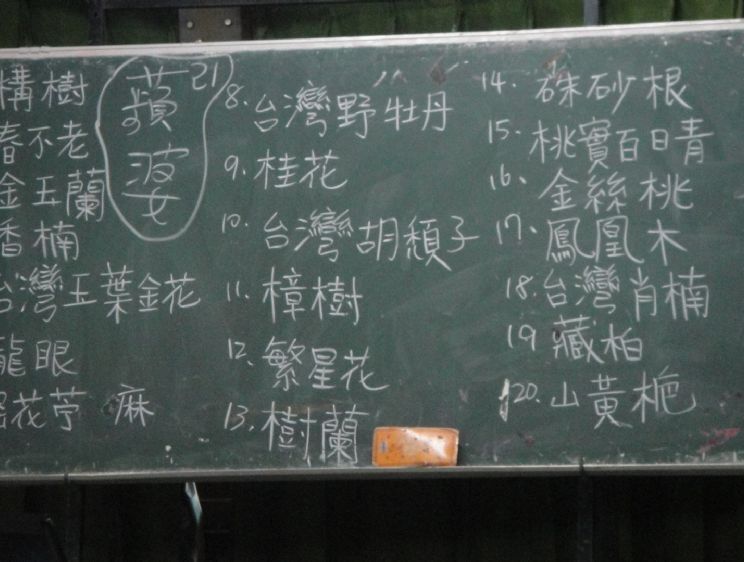 構樹
春不老
金玉蘭
香楠
台灣玉葉金花
龍眼
花苧麻
21
蘋婆
8. 台灣野牡丹
9. 桂花
10. 台灣胡頹子
11. 樟樹
12. 繁星花
13. 樹蘭
14. 硃砂根
15. 桃實百日青
16. 金絲桃
17. 鳳凰木
18. 台灣肖楠
19 藏柏
20. 山黃梔